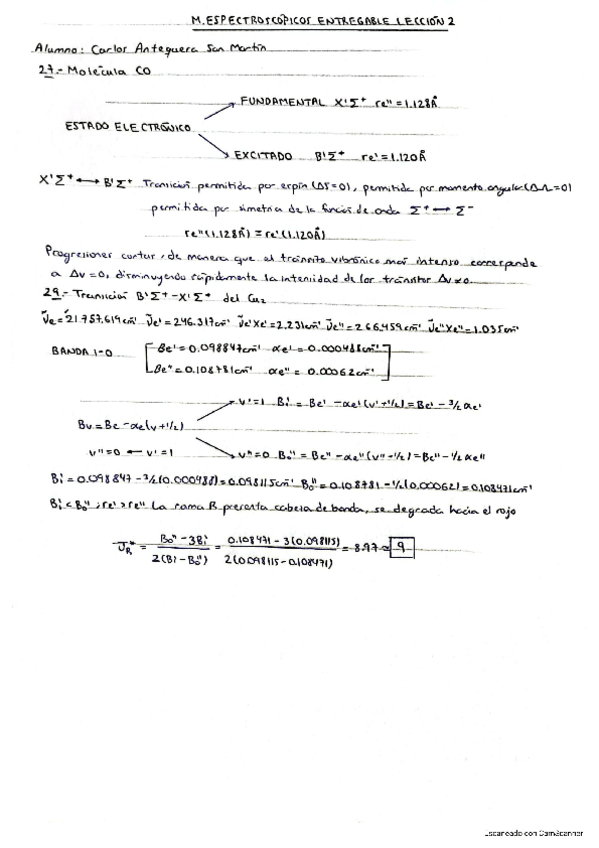 M.ESPECTROSCÓPICOS ENTREGABLE LECCIÓN 2
Alumno: Carlos Antequera San Martín
27.- Molécula CO
FUNDAMENTAL X'Σ+ re"=1.128Å
ESTADO ELECTRÓNICO
EXCITADO B'Σ+ re'=1.120Å
X'Σ+ ↔ B'Σ+ Transición permitida por espín (ΔS=0), permitida por momento angular (ΔΛ=0)
permitida por simetría de la función de onda Σ+ ↔ Σ-
re"(1.128Å) ≈ re'(1.120Å)
Progresiones cortas, de manera que el tránsito vibrónico más intenso corresponde
a Δv=0, disminuyendo rápidamente la intensidad de los tránsitos Δv≠0.
29.- Transición B'Σ+-X'Σ+ del Cu2
ṽe=21.757,619cm-1 ṽe'=246.317cm-1 ṽe'xe'=2.231cm-1 ṽe"=266.459cm-1 ṽe"xe"=1.035cm-1
BANDA 1-0
Be'=0.098847cm-1 αe'=0.000488cm-1
Be"=0.108781cm-1 αe"=0.00062cm-1
v'=1 B1'=Be'-αe'(v'+1/2)=Be'-3/2αe'
Bv=Be-αe(v+1/2)
v"=0 ← v'=1 v"=0 B0"=Be"-αe"(v"-1/2)=Be"-1/2αe"
B1'=0.098847-3/2(0.000488)=0.098115cm-1 B0"=0.108781-1/2(0.00062)=0.108471cm-1
B1'<B0", re'>re" La rama R presenta cabeza de banda, se degrada hacia el rojo
JR*= B0"-3B1' / 2(B1'-B0") = 0.108471-3(0.098115) / 2(0.098115-0.108471) = 8.97≈9
Escaneado con CamScanner